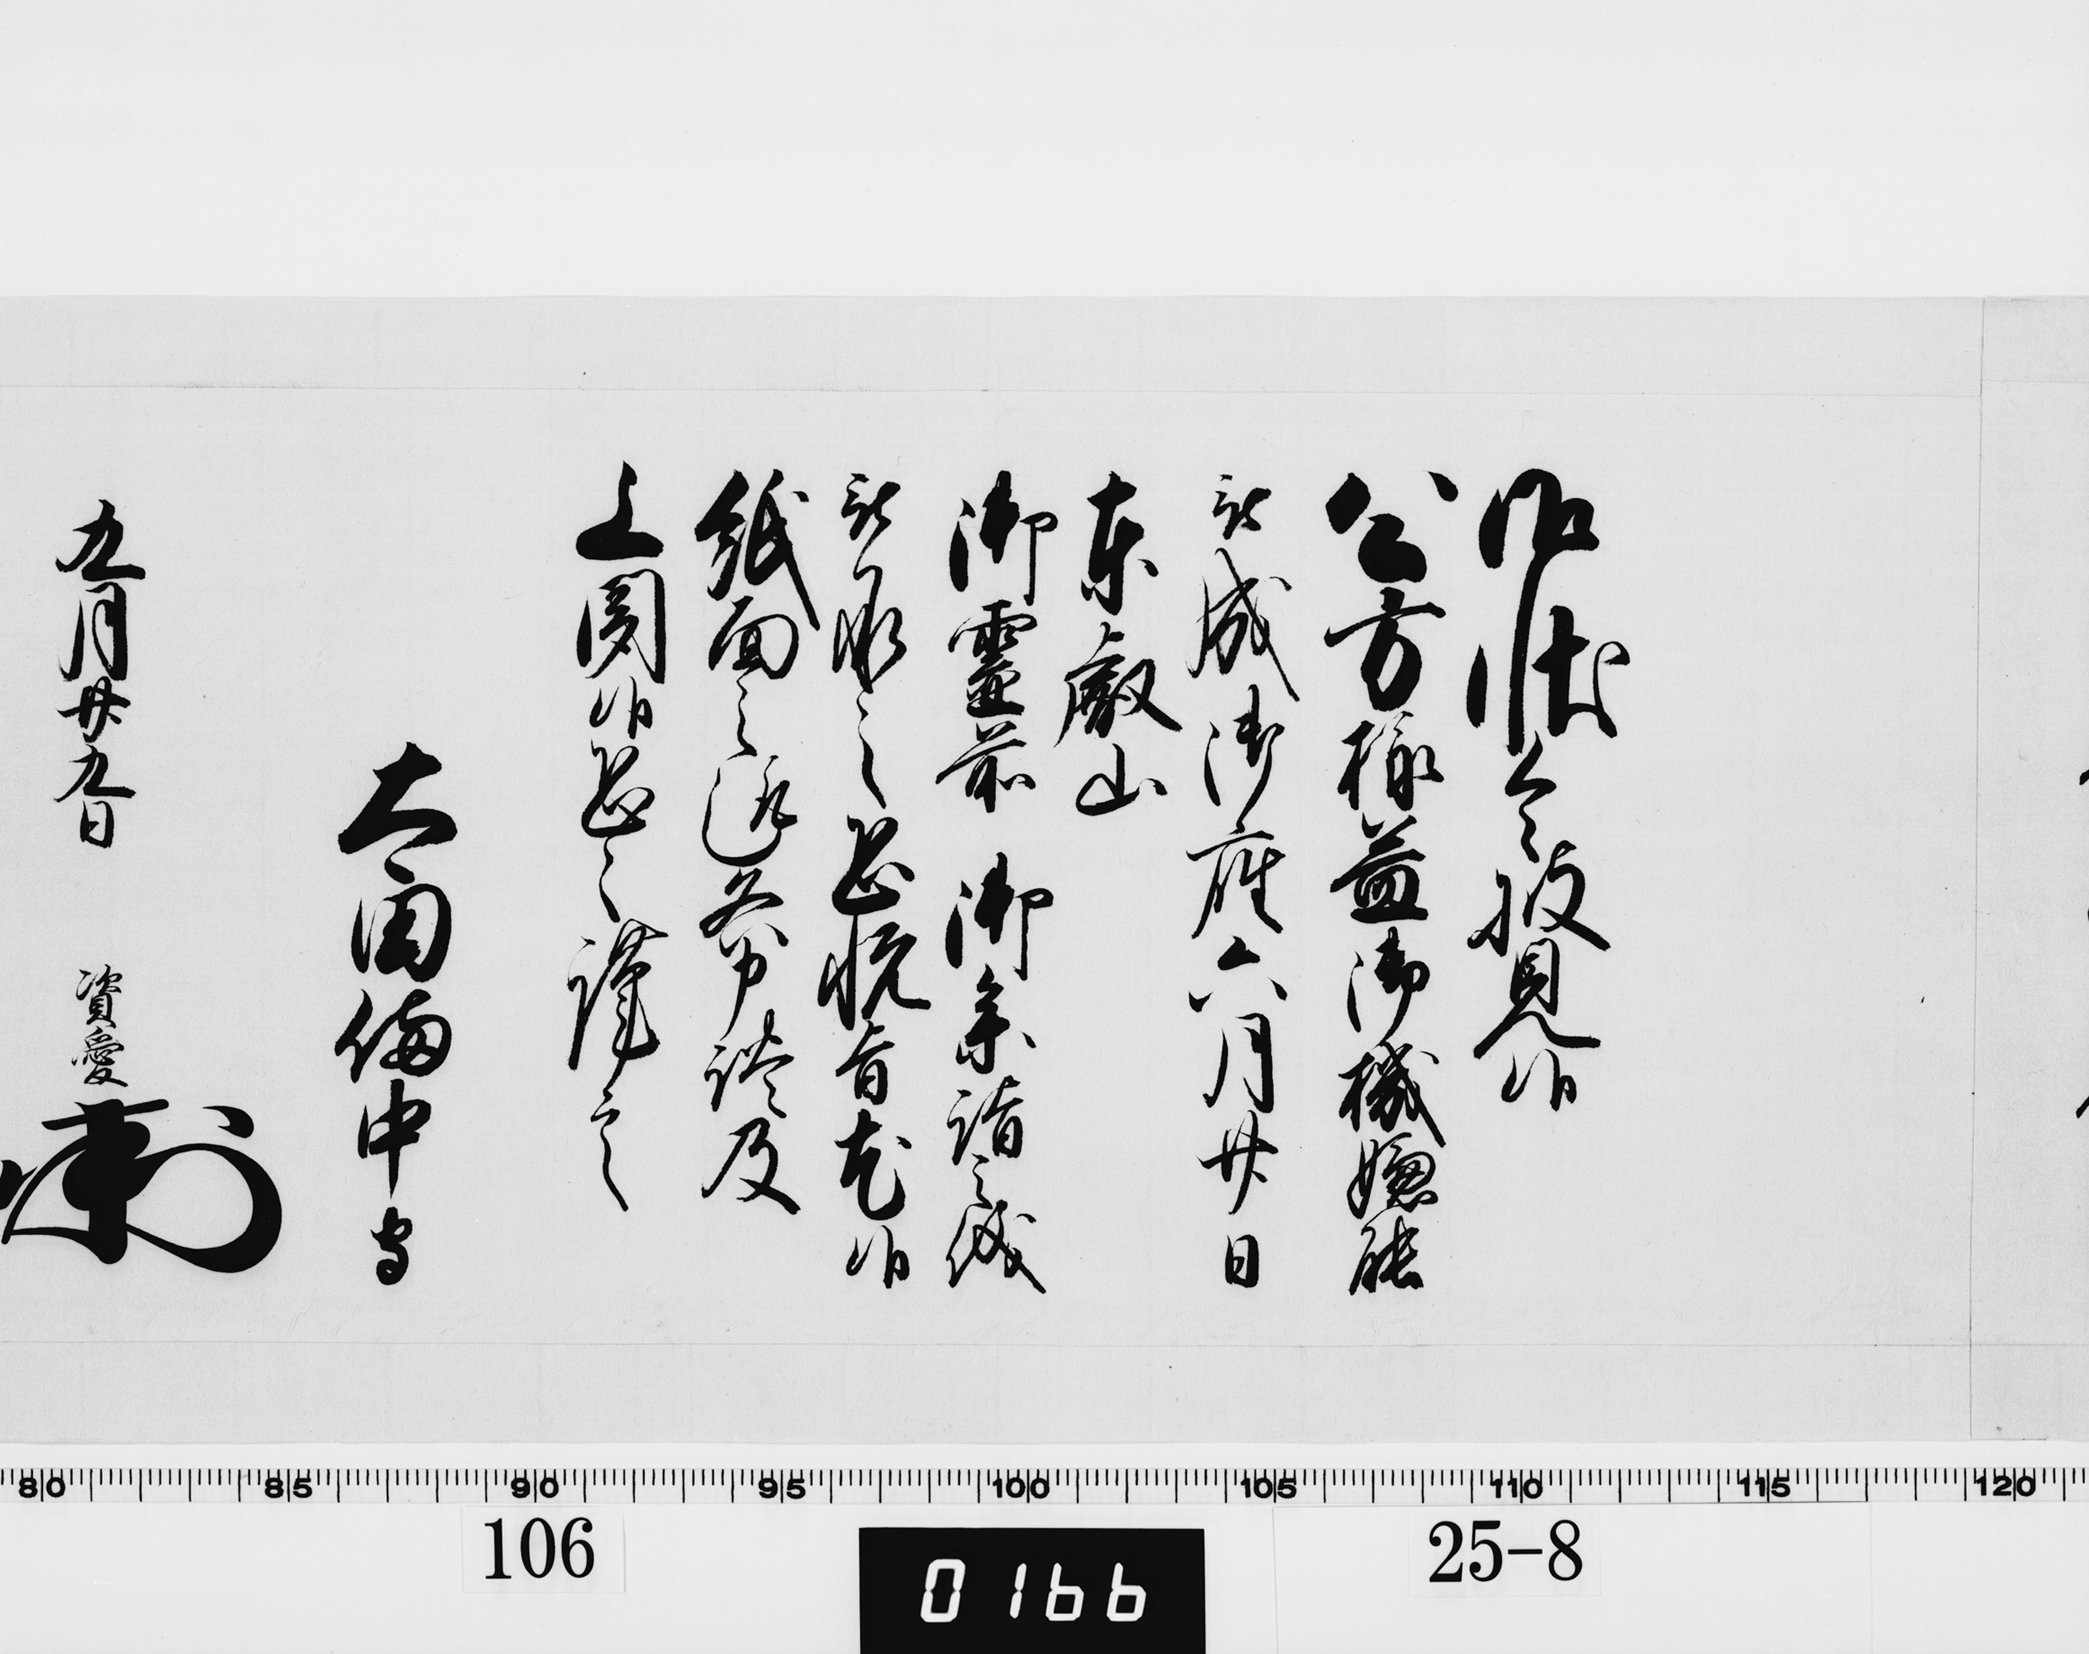 御状令披見候
公方様益御機嫌能
被成御座六月廿日
東叡山
御霊前 御参詣之儀
被承之恐悦旨尤候
紙面之趣各申談及
上聞候恐々謹言
太田備中守
九月廿九日 資愛
80 85 90 95 100 105 110 115 120
106 0166 25-8